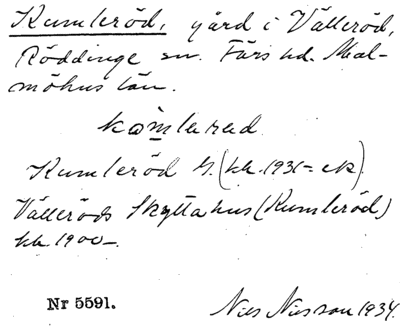 Kumleröd, gård i Välleröd,
Röddinge sn. Färs hd. Mal-
möhus län.
kɷ̀mlarad
Kumleröd G. (kk. 1931= ek)
Välleröds Skyttahus (Kumleröd)
kk. 1900-.
Nr 5591.
Nils Nilsson 1934.